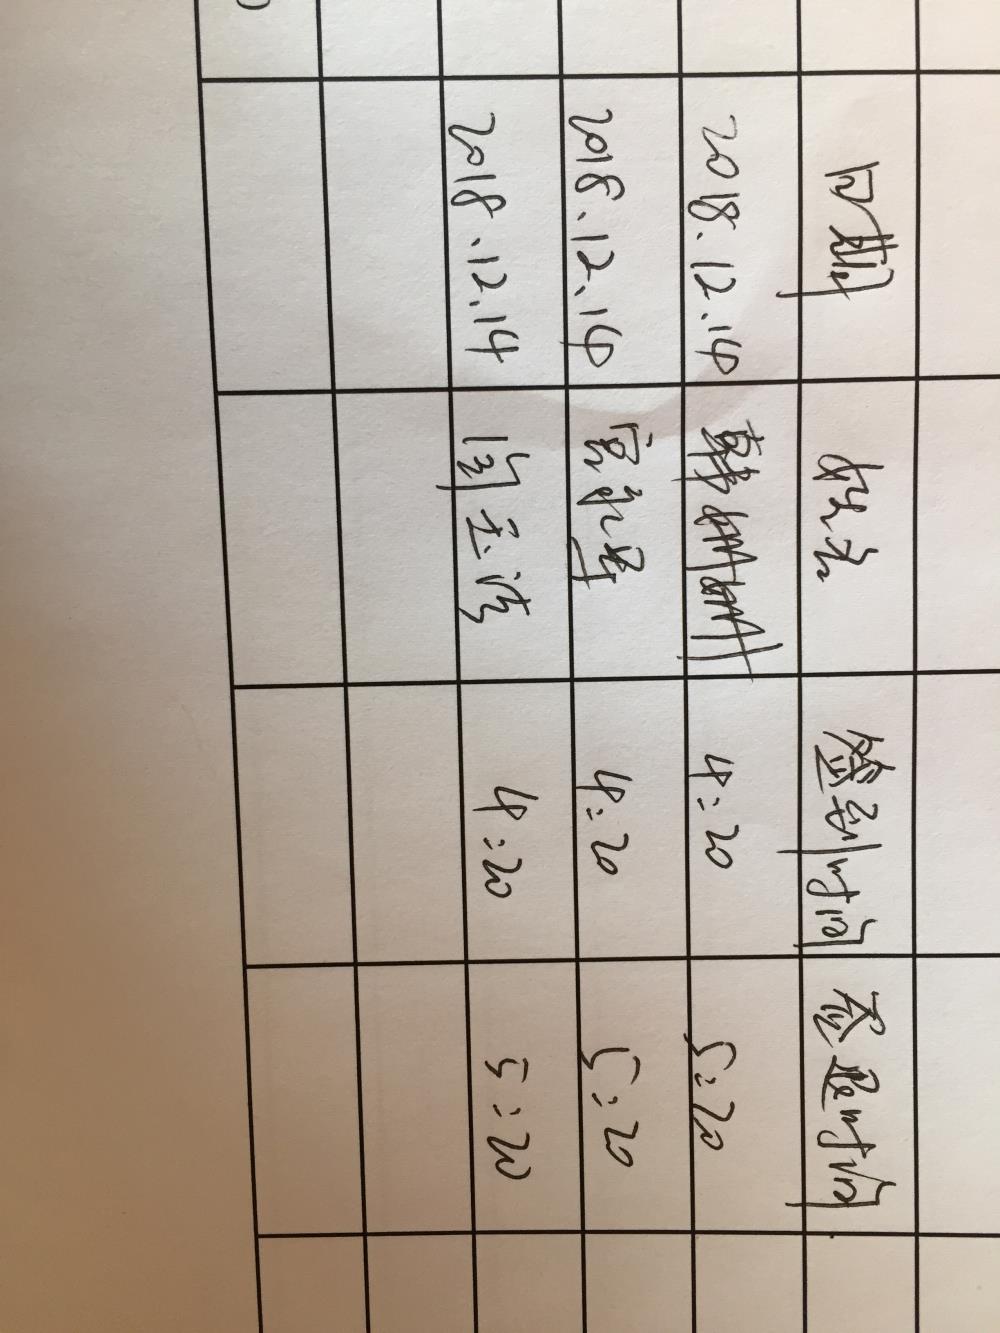 日期 姓名 签到时间 签退时间
2018.12.14 韩姗姗 4:20 5:20
2018.12.14 宫 4:20 5:20
2018.12.14 4:20 5:20